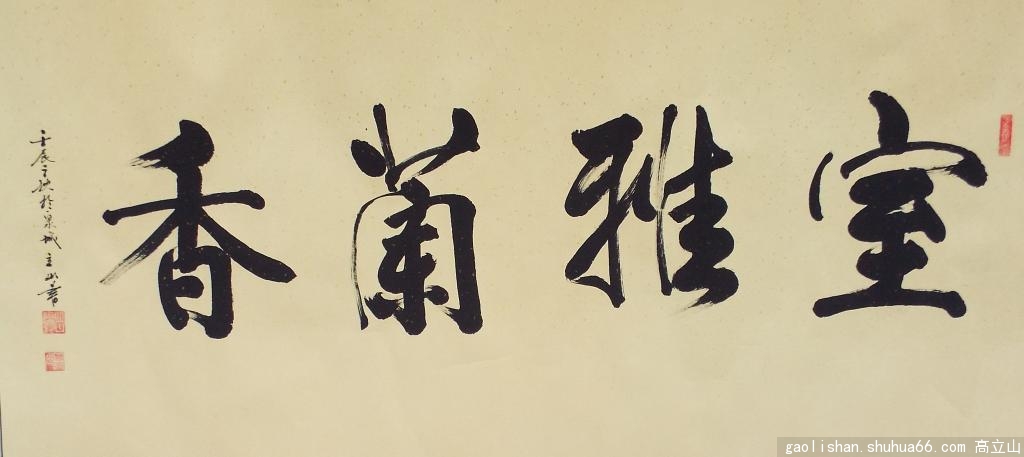 室雅蘭香
壬辰之秋於泉城立山書
gaolishan.shuhua66.com 高立山